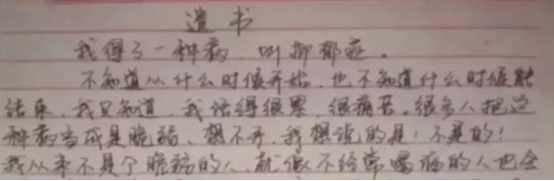 遗书
我得了一种病，叫抑郁症。
不知道从什么时候开始，也不知道什么时候能
结束，我只知道，我活得很累，很痛苦。很多人把这
种病当成是脆弱、想不开，我想说的是：不是的！
我从来不是个脆弱的人，就像不经常喝酒的人也会